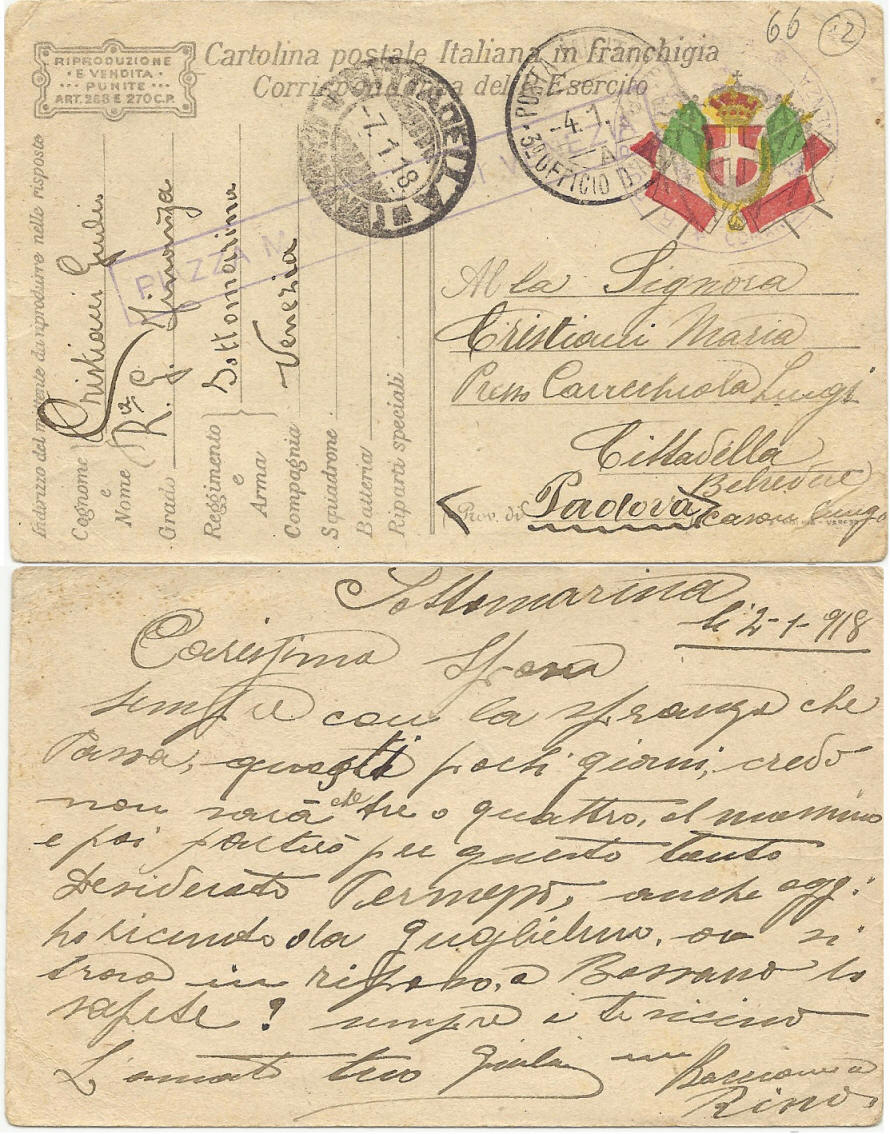 66 12
RIPRODUZIONE
E VENDITA
PUNITE
ART. 268 E 270 C.P.
Cartolina postale Italiana in franchigia
Corrispondenza dell' Esercito
CITTADELLA
-7.1.18
POSTA
-4.1.
3º UFFICIO
PIAZZA M VENEZIA
Indirizzo del mittente da riprodurre nelle risposte
Cognome Cristiani
e
Nome Rª G. Finanza
Grado
Reggimento Sottomarina
e
Arma
Compagnia Venezia
Squadrone
Batteria
Riparti speciali
Alla Signora
Cristiani Maria
Presso Luigi
Cittadella
(Prov. di Padova)
Sottomarina
li 2-1-918
Carissima Sposa
sempre con la speranza che
Passa, questi pochi giorni, credo
non sarà che tre o quattro, al massimo
e poi partirò per questo tanto
Desiderato Permesso, anche oggi
da Guglielmo, ora si
trova in riposo, a Bassano lo
sapete? sempre a te vicino
L'amato tuo un
Rino